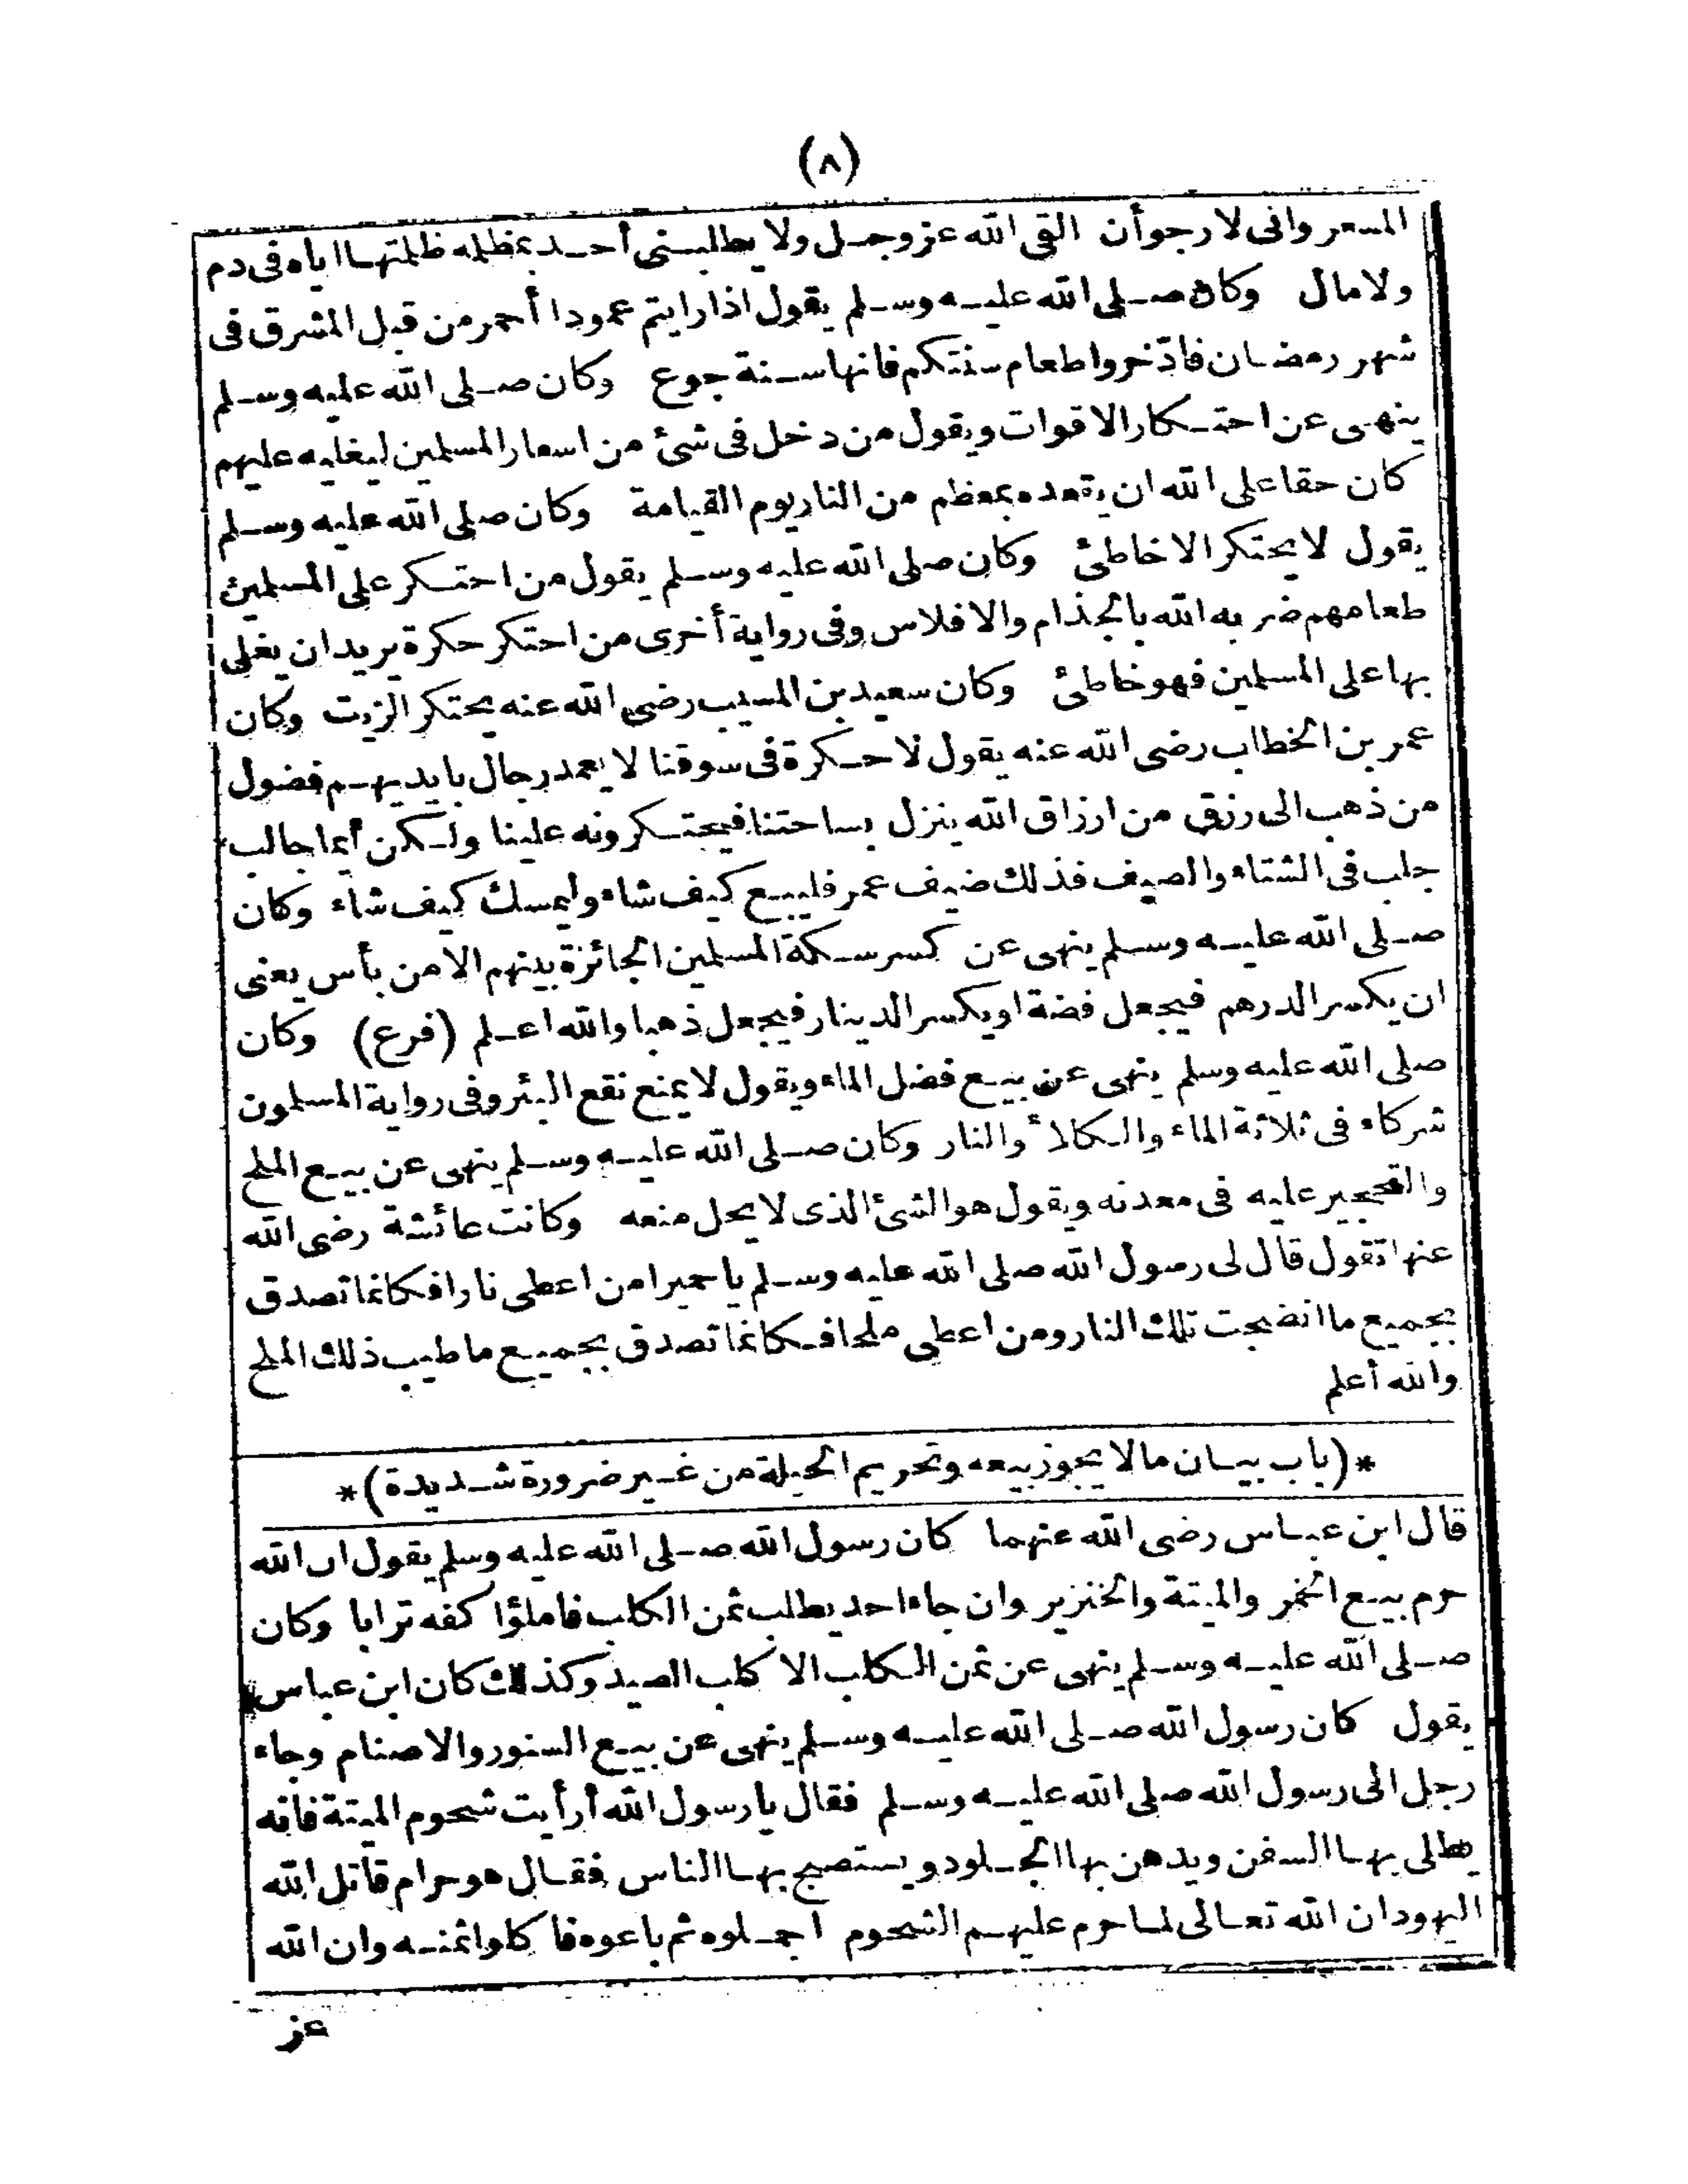 (٨)
المسعر وانى لارجو أن القى الله عز وجل ولا يطلبنى أحد بمظلمه ظلمتها اياه فى دم
ولا مال وكان صلى الله عليه وسلم يقول اذا رايتم عمودا أحمر من قبل المشرق فى
شهر رمضان فادّخروا طعام سنتكم فانها سنة جوع وكان صلى الله عليه وسلم
ينهى عن احتكار الاقوات ويقول من دخل فى شئ من اسعار المسلمين ليغليه عليهم
كان حقا على الله ان يقعده بمعظم من النار يوم القيامة وكان صلى الله عليه وسلم
يقول لا يحتكر الا خاطئ وكان صلى الله عليه وسلم يقول من احتكر على المسلمين
طعامهم ضربه الله بالجذام والافلاس وفى رواية أخرى من احتكر حكرة يريد ان يغلى
بها على المسلمين فهو خاطئ وكان سعيد بن المسيب رضى الله عنه يحتكر الزيت وكان
عمر بن الخطاب رضى الله عنه يقول لا حكرة فى سوقنا لا يعمد رجال بايديهم فضول
من ذهب الى رزق من ارزاق الله ينزل بساحتنا فيحتكرونه علينا ولكن أيما جالب
جلب فى الشتاء والصيف فذلك ضيف عمر فليبع كيف شاء وليمسك كيف شاء وكان
صلى الله عليه وسلم ينهى عن كسر سكة المسلمين الجائزة بينهم الا من بأس يعنى
ان يكسر الدرهم فيجعل فضة او يكسر الدينار فيجعل ذهبا والله اعلم (فرع) وكان
صلى الله عليه وسلم ينهى عن بيع فضل الماء ويقول لا يمنع نقع البئر وفى رواية المسلمون
شركاء فى ثلاثة الماء والكلاء والنار وكان صلى الله عليه وسلم ينهى عن بيع الملح
والتحجير عليه فى معدنه ويقول هو الشئ الذى لا يحل منعه وكانت عائشة رضى الله
عنها تقول قال لى رسول الله صلى الله عليه وسلم يا حميرا من اعطى نارا فكانما تصدق
بجميع ما انضجت تلك النار ومن اعطى ملحا فكانما تصدق بجميع ما طيب ذلك الملح
والله أعلم
*(باب بيان ما لا يجوز بيعه وتحريم الحيلة من غير ضرورة شديدة)*
قال ابن عباس رضى الله عنهما كان رسول الله صلى الله عليه وسلم يقول ان الله
حرم بيع الخمر والميتة والخنزير وان جاء احد يطلب ثمن الكلب فاملؤا كفه ترابا وكان
صلى الله عليه وسلم ينهى عن ثمن الكلب الا كلب الصيد وكذلك كان ابن عباس
يقول كان رسول الله صلى الله عليه وسلم ينهى عن بيع السنور والاصنام وجاء
رجل الى رسول الله صلى الله عليه وسلم فقال يا رسول الله أرأيت شحوم الميتة فانه
يطلى بها السفن ويدهن بها الجلود ويستصبح بها الناس فقال هو حرام قاتل الله
اليهود ان الله تعالى لما حرم عليهم الشحوم اجملوه ثم باعوه فاكلوا ثمنه وان الله
عز